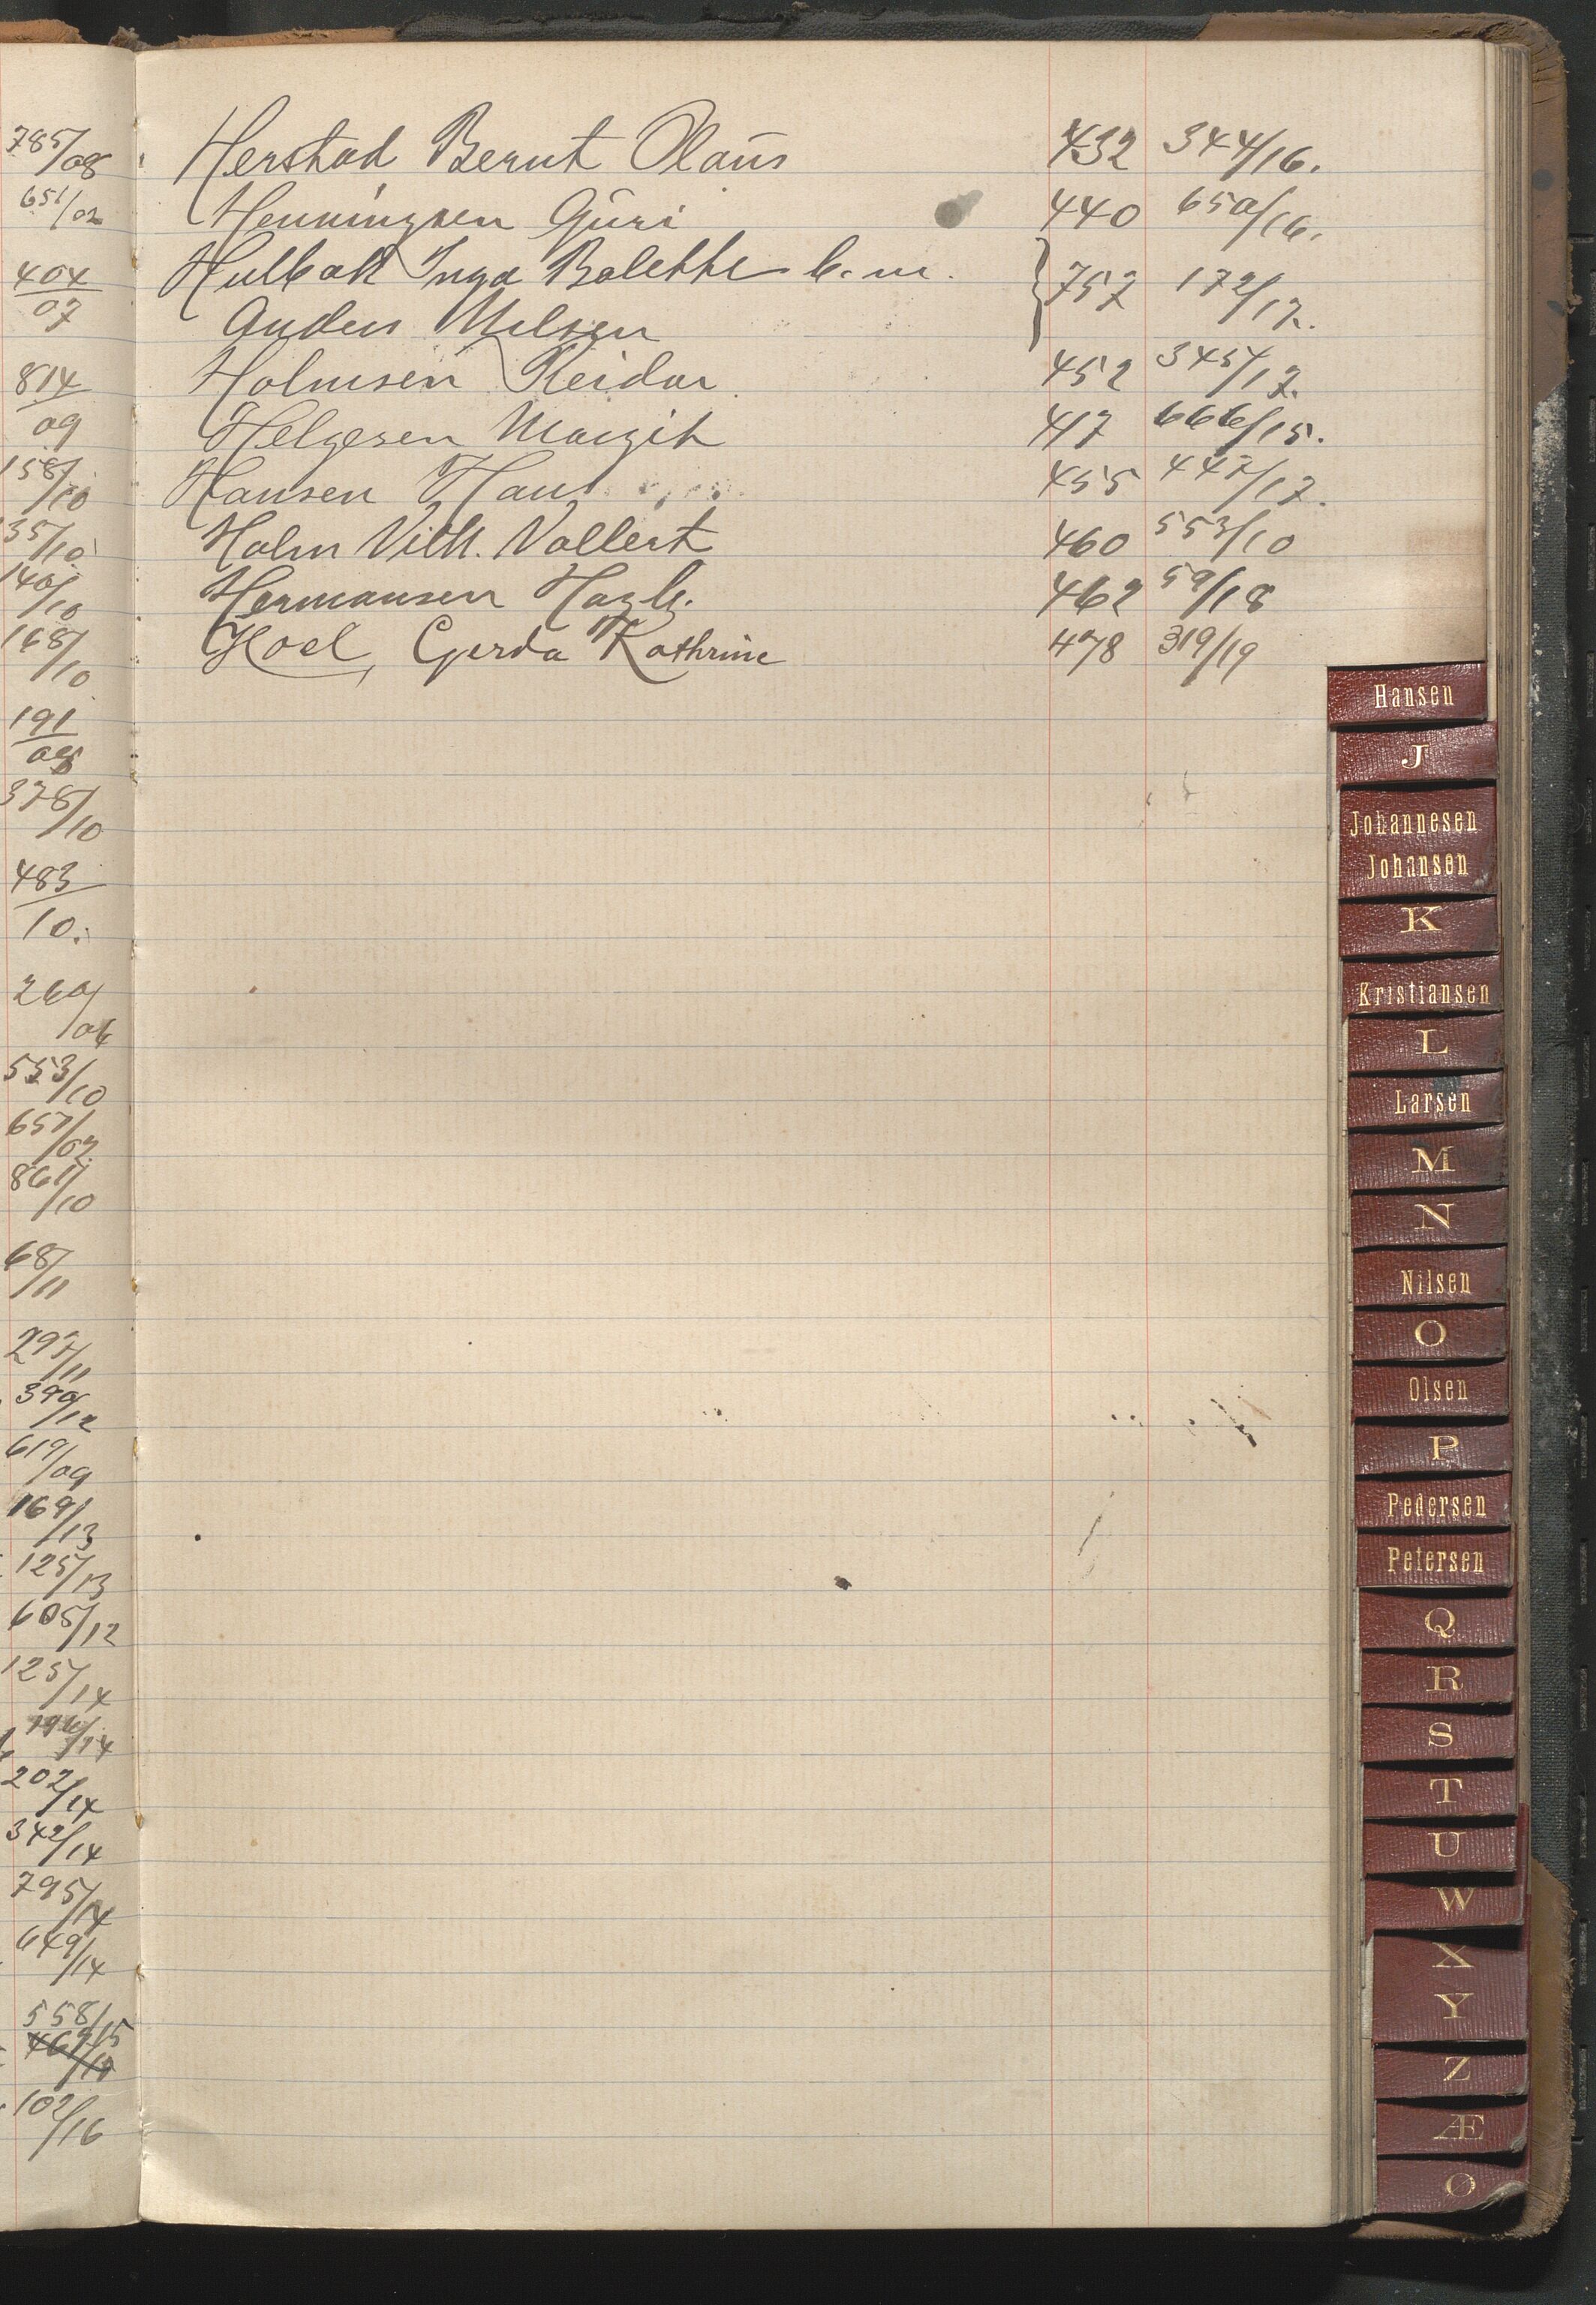 785/08
651/02
404/07
814/09
158/10
35/10
140/10
168/10
191/08
378/10
483/10.
260/06
553/10
657/07
861/10
68/11
297/11
390/12
619/09
169/13
125/13
605/12
125/14
196/14
202/14
342/14
795/14
649/14
558/15
102/16
Herstad Bernt Olaus 432 344/16.
Henningsen Guri 440 650/16.
Hulbak Inga Balethe b. m. 757 172/17.
Anders Nilsen
Holmsen Reidar 452 345/17.
Helgesen Margit 417 666/15.
Hansen Hans 455 447/17.
Holm Vilh. Vollert 460 553/10
Hermansen Hagb. 462 59/18
Hoel, Gerda Kathrine 478 319/19
Hansen
J
Johannesen
Johansen
K
Kristiansen
L
Larsen
M
N
Nilsen
O
Olsen
P
Pedersen
Petersen
Q
R
S
T
U
W
X
Y
Z
Æ
Ø